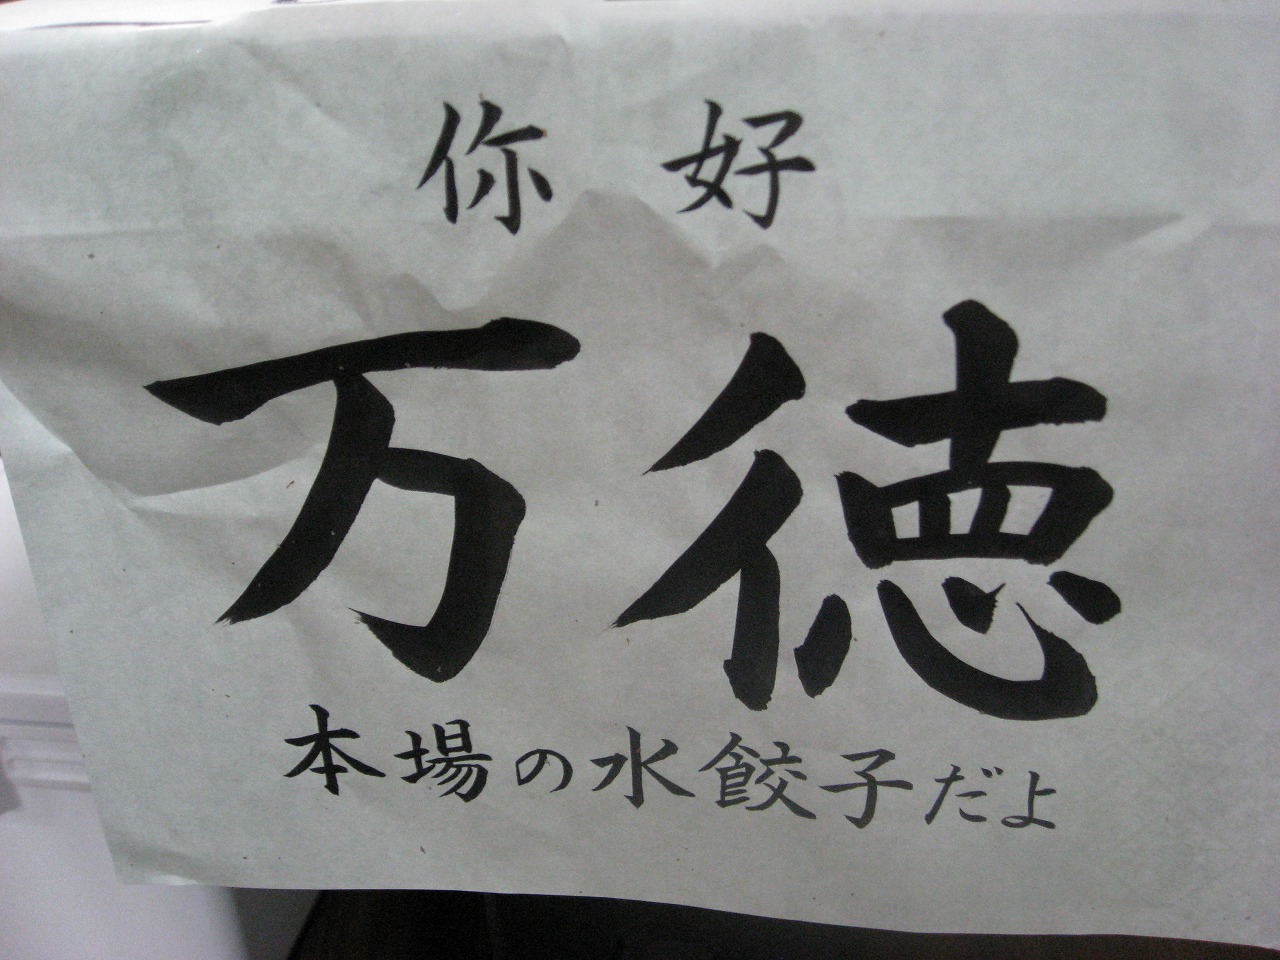 你好
万徳
本場の水餃子だよ